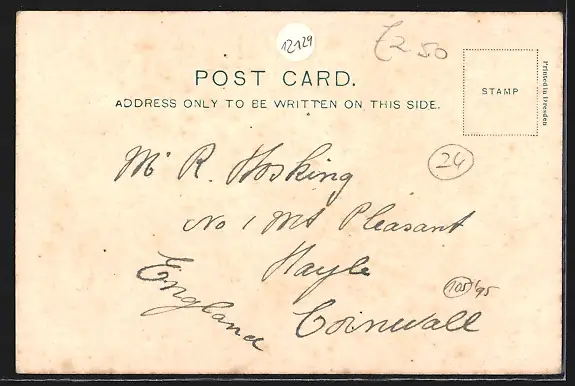 12129
£2 50
POST CARD.
ADDRESS ONLY TO BE WRITTEN ON THIS SIDE.
STAMP
Printed in Dresden
24
Mr R. Hosking
No 1 Mt Pleasant
Hayle
England
Cornwall